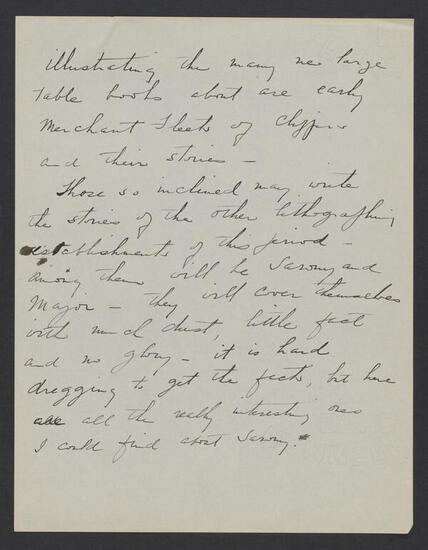 illustrating the many new large
table books about are early
Merchant Fleets of Clippers
and their stories –
Those so inclined may write
the stories of the other lithographing
establishments of this period –
among them will be Sarony and
Major – they will cover themselves
with much dust, little fact
and no glory – it is hard
dregging to get the facts, but here
all the really interesting ones
I could find about Sarony.